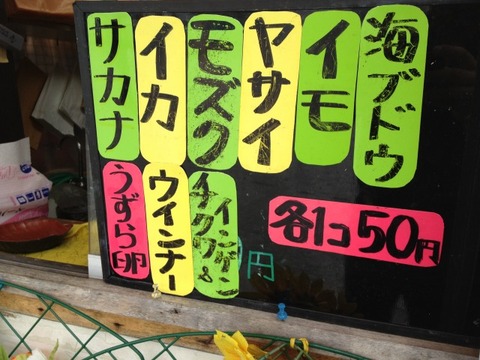 海ブドウ
イモ
ヤサイ
モズク
イカ
サカナ
チクワ&
インゲン
ウインナー
うずら卵
各1コ50円
円